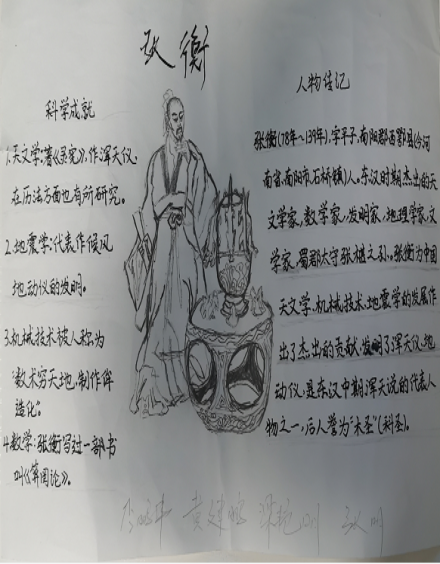 张衡
科学成就
1.天文学:著《灵宪》,作浑天仪,
在历法方面也有所研究。
2.地震学:代表作候风
地动仪的发明。
3.机械技术被人称为
“数术穷天地,制作侔
造化”。
4.数学:张衡写过一部书
叫《算罔论》。
人物传记
张衡(78年~139年),字平子,南阳郡西鄂县(今河
南省南阳市石桥镇)人。东汉时期杰出的天
文学家,数学家,发明家,地理学家,文
学家,蜀郡太守张堪之孙。张衡为中国
天文学、机械技术、地震学的发展作
出了杰出的贡献,发明了浑天仪、地
动仪,是东汉中期浑天说的代表人
物之一,后人誉为“木圣”(科圣)。